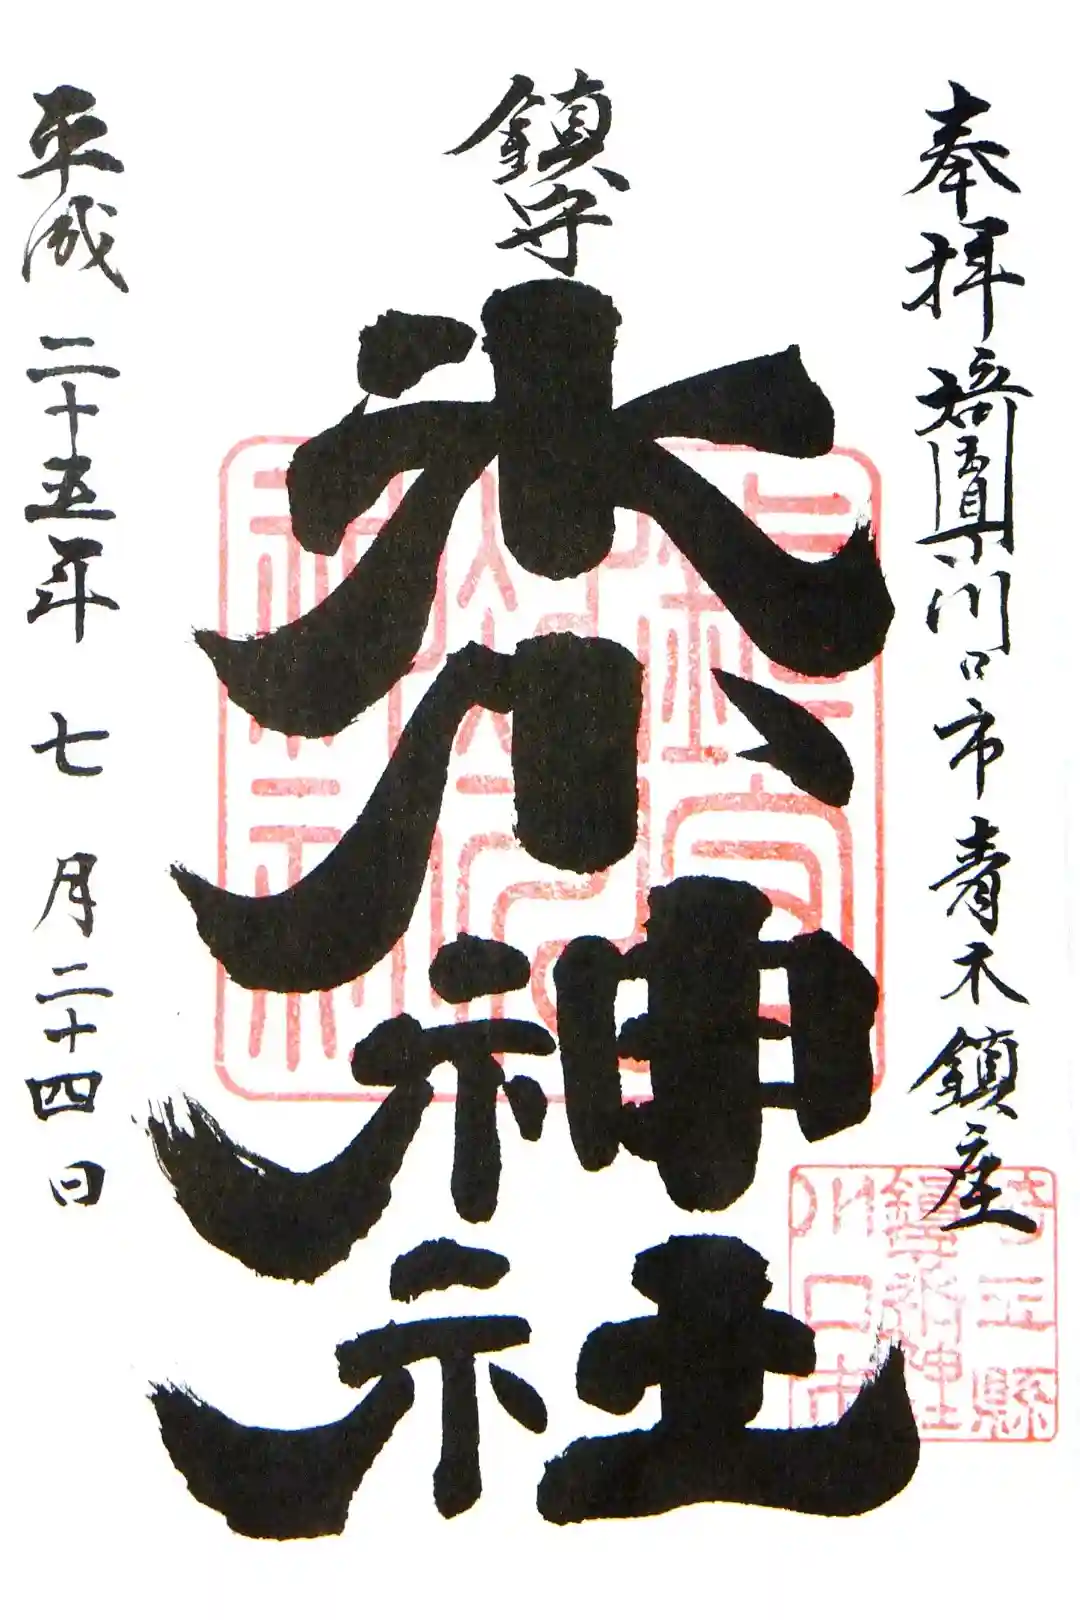 奉拝 埼玉圓川口市青木鎮座
鎮守
氷川神社
平成二十五年七月二十四日
埼玉縣
川口市